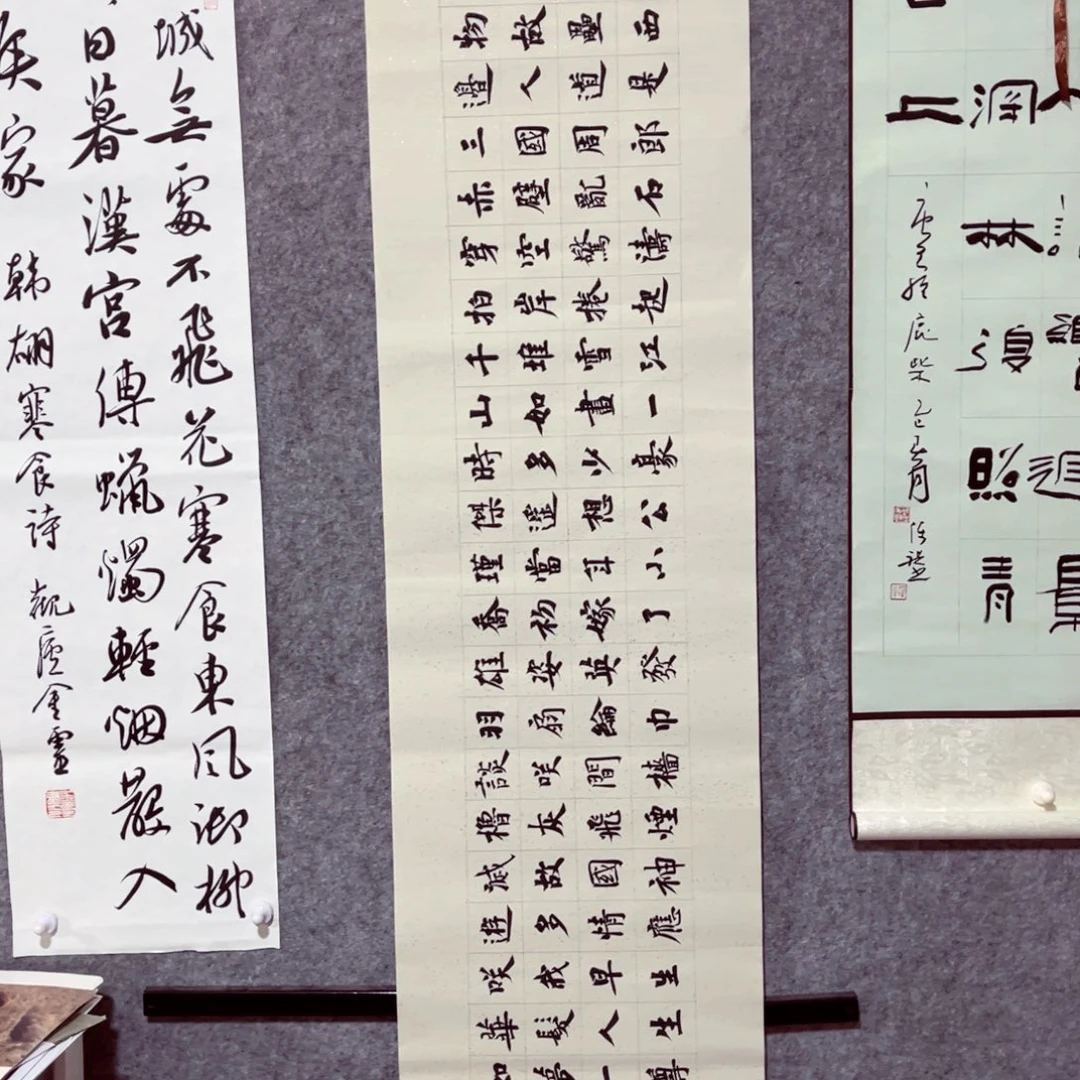 城無處不飛花寒食東風御柳
日暮漢宮傳蠟燭輕烟散入
侯家 韓翃寒食詩
物故壘西
邊人道是
三國周郎
赤壁亂石
穿空驚濤
拍岸捲起
千堆雪江
山如畫一
時多少豪
傑遙想公
瑾當年小
喬初嫁了
雄姿英發
羽扇綸巾
談咲間檣
櫓灰飛煙
滅故國神
遊多情應
咲我早生
華髮人生
如夢一樽
深林復照青
上
唐王維鹿柴